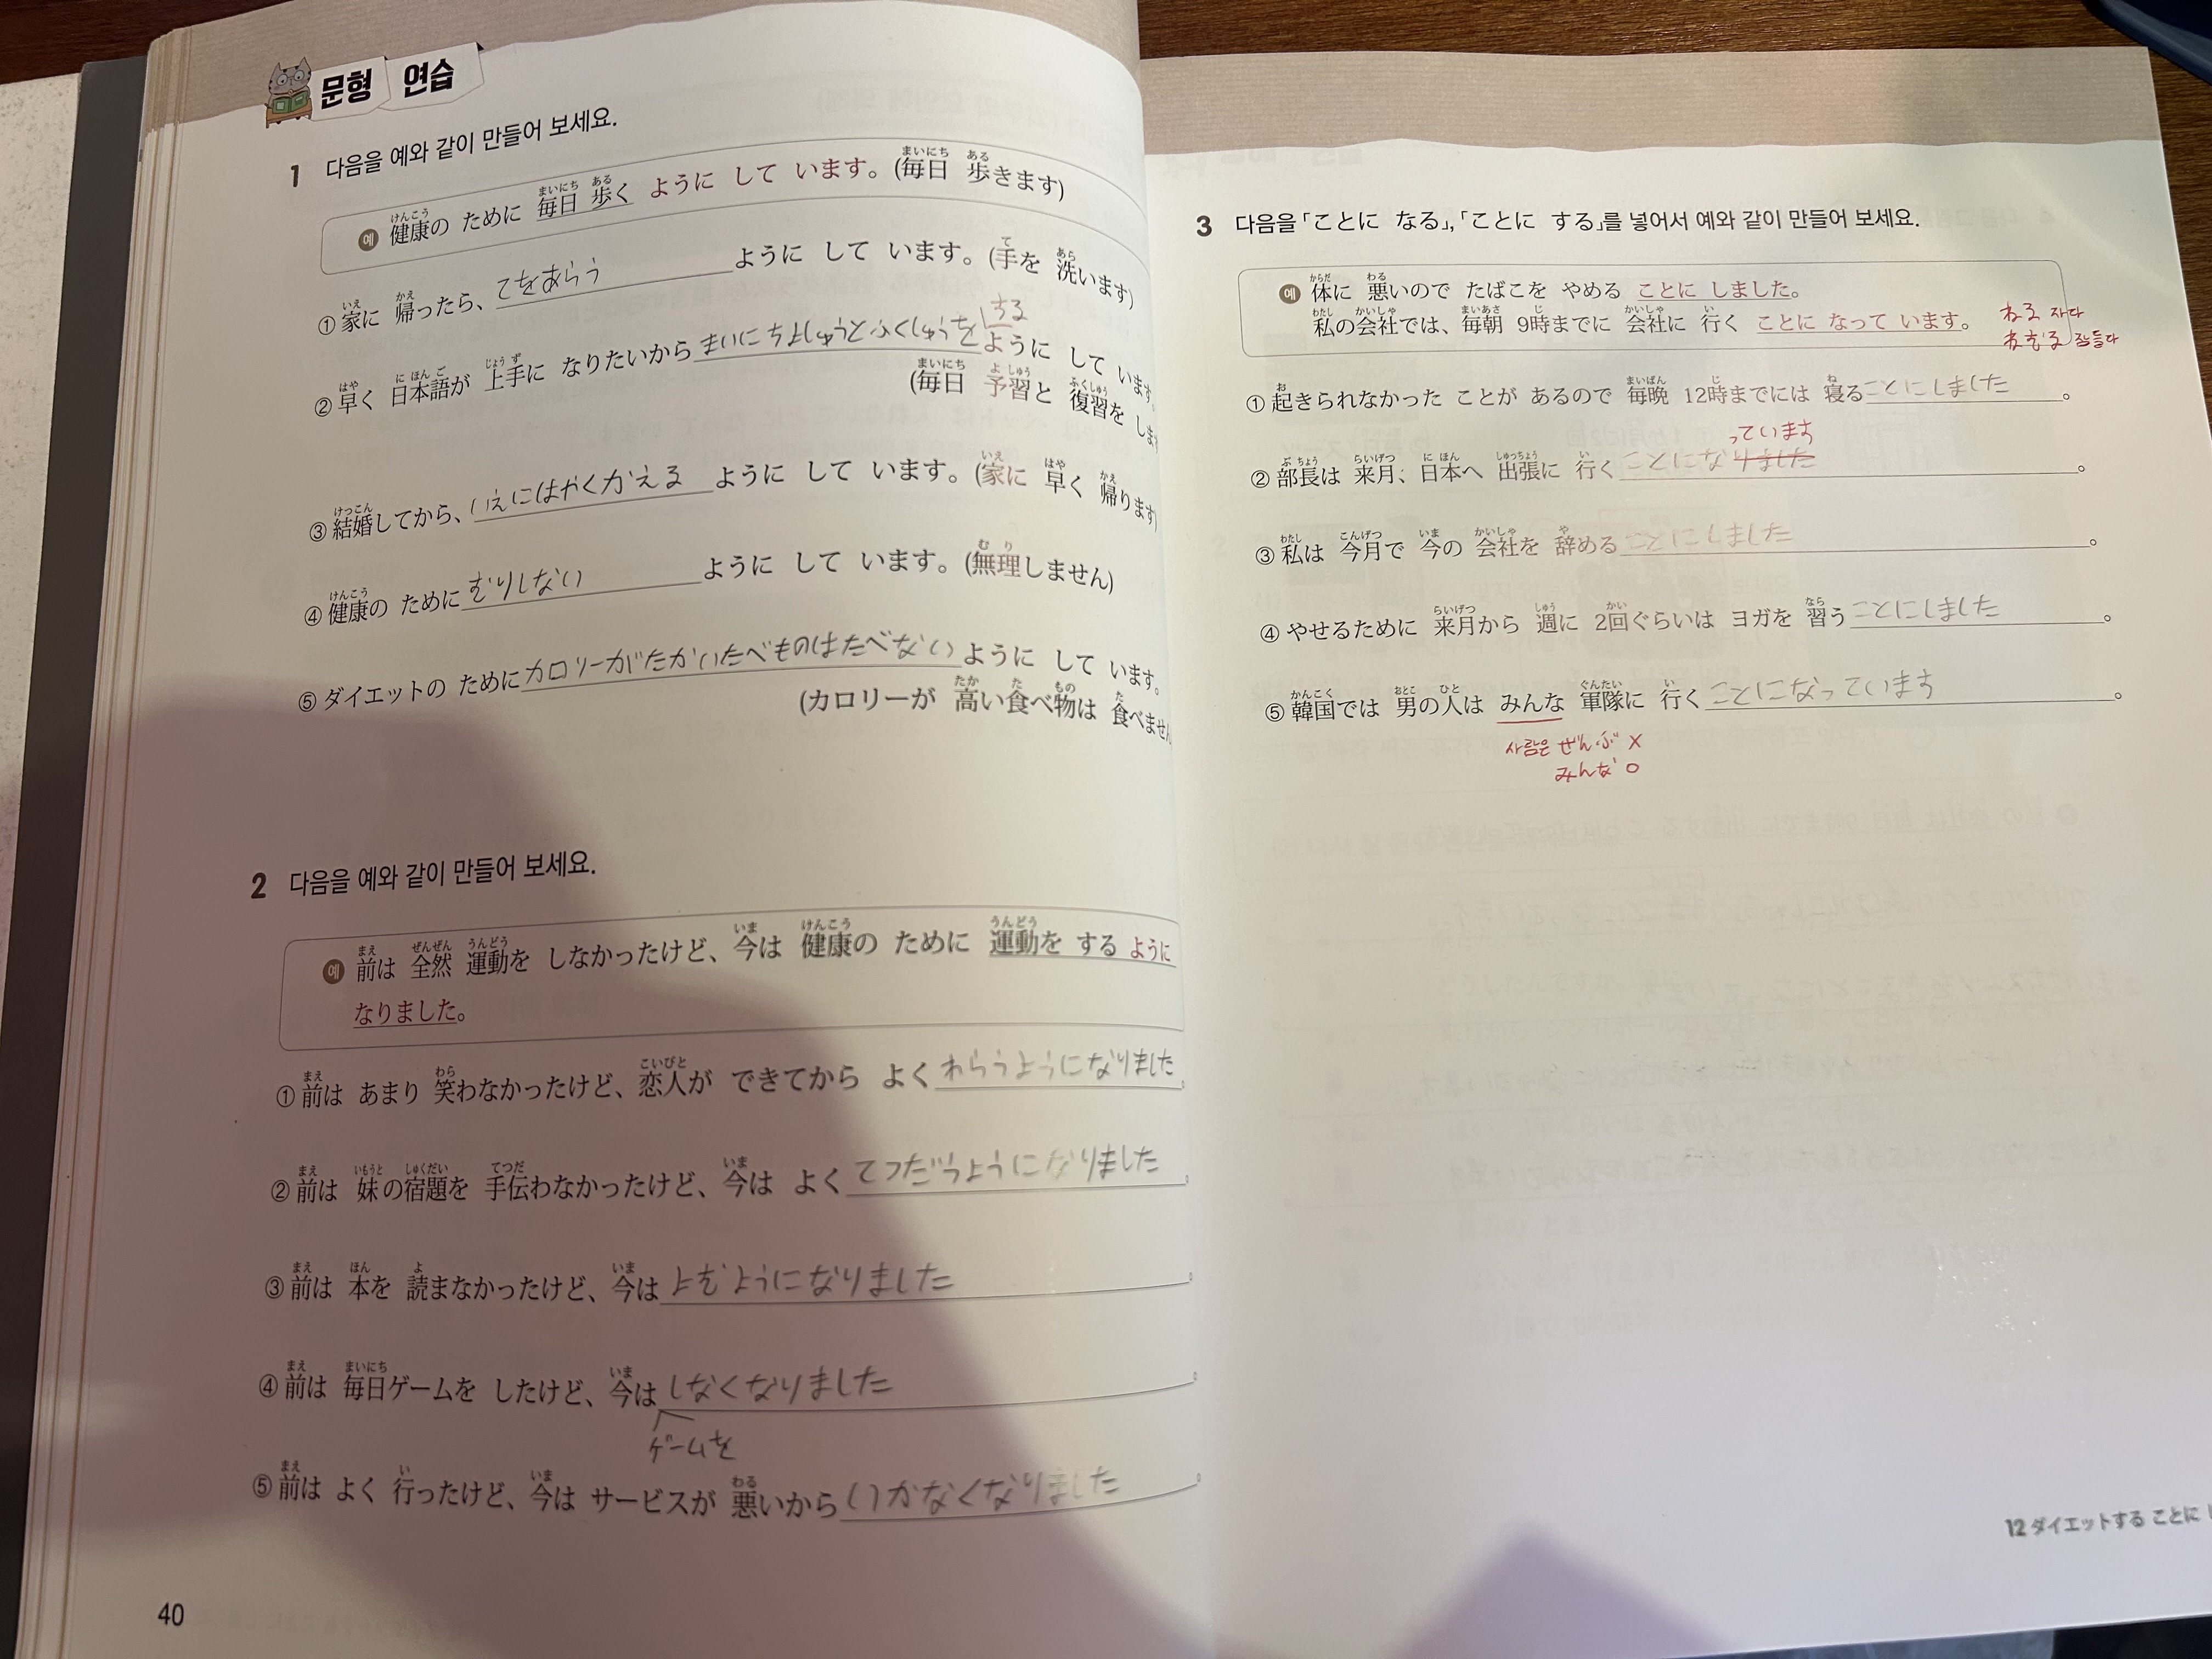 문형 연습
1 다음을 예와 같이 만들어 보세요.
예 健康の ために 毎日 歩く ように して います。(毎日 歩きます)
① 家に 帰ったら、てをあらう ように して います。(手を 洗います)
する
② 早く 日本語が 上手に なりたいから ように して います。
(毎日 予習と 復習を しま
③ 結婚してから、いえにはやくかえる ように して います。(家に 早く 帰ります)
④ 健康の ために むりしない ように して います。(無理しません)
⑤ ダイエットの ために カロリーがたかいたべものはたべない ように して います。
(カロリーが 高い食べ物は 食べません
2 다음을 예와 같이 만들어 보세요.
예 前は 全然 運動を しなかったけど、今は 健康の ために 運動を する ように
なりました。
① 前は あまり 笑わなかったけど、恋人が できてから よく わらうようになりました。
② 前は 妹の宿題を 手伝わなかったけど、今は よく てつだうようになりました。
③ 前は 本を 読まなかったけど、今は よむようになりました。
④ 前は 毎日ゲームを したけど、今は しなくなりました。
ゲームを
⑤ 前は よく 行ったけど、今は サービスが 悪いから いかなくなりました。
40
3 다음을 「ことに なる」, 「ことに する」를 넣어서 예와 같이 만들어 보세요.
예 体に 悪いので たばこを やめる ことに しました。
私の会社では、毎朝 9時までに 会社に 行く ことに なって います。
ねる 자다
ねむる 잠들다
① 起きられなかった ことが あるので 毎晩 12時までには 寝る ことにしました。
っています
② 部長は 来月、日本へ 出張に 行く ことになりました。
③ 私は 今月で 今の 会社を 辞める ことにしました。
④ やせるために 来月から 週に 2回ぐらいは ヨガを 習う ことにしました。
⑤ 韓国では 男の人は みんな 軍隊に 行く ことになっています。
사람은 ぜんぶ X
みんな O
12 ダイエットする ことに